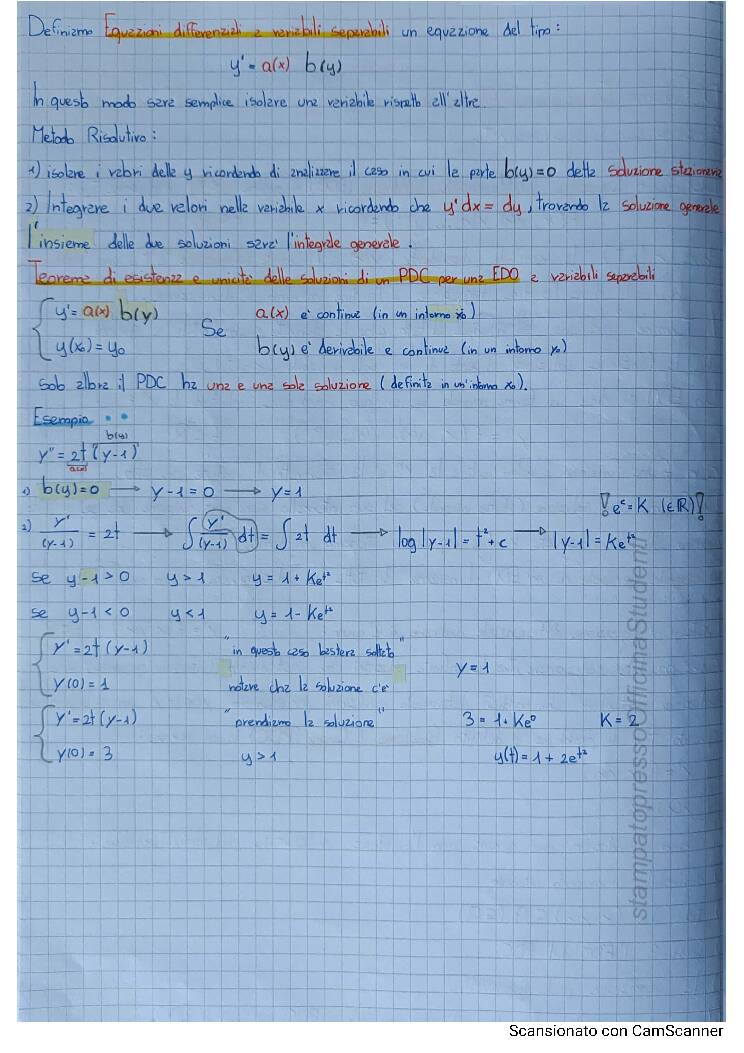 Definiamo Equazioni differenziali a variabili separabili un equazione del tipo:
y' = a(x) b(y)
In questo modo sara semplice isolare una variabile rispetto all'altra.
Metodo Risolutivo:
1) isolare i valori della y ricordando di analizzare il caso in cui la parte b(y)=0 detta soluzione stazionaria
2) Integrare i due valori nella variabile x ricordando che y'dx = dy, trovando la soluzione generale
l'insieme delle due soluzioni sara' l'integrale generale.
Teorema di esistenza e unicità delle soluzioni di un PDC per una EDO a variabili separabili
y' = a(x) b(y) Se a(x) e' continua (in un intorno x0)
y(x0) = y0 b(y) e' derivabile e continua (in un intorno y0)
Solo allora il PDC ha una e una sola soluzione (definita in un'intorno x0).
Esempio
b(y)
y'' = 2t (y-1)
a(x)
1) b(y)=0 → y-1=0 → y=1
!e^c = K (∈ℝ)!
2) y'/(y-1) = 2t → ∫ y'/(y-1) dt = ∫ 2t dt → log|y-1| = t²+c → |y-1| = Ke^t²
se y-1>0 y>1 y = 1+Ke^t²
se y-1<0 y<1 y = 1-Ke^t²
y' = 2t(y-1) "in questo caso bastera soltato"
y(0) = 1 notare cha la soluzione c'e y=1
y' = 2t(y-1) "prendiamo la soluzione" 3 = 1+Ke^0 K=2
y(0) = 3 y>1 y(t) = 1+2e^t²
stampatopressoOfficinaStudenti
Scansionato con CamScanner